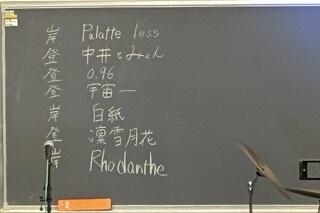 岸 Palatte loss
登 中井とみょん
登 0.96
登 宇宙一
岸 白紙
登 凛雪月花
岸 Rhodanthe